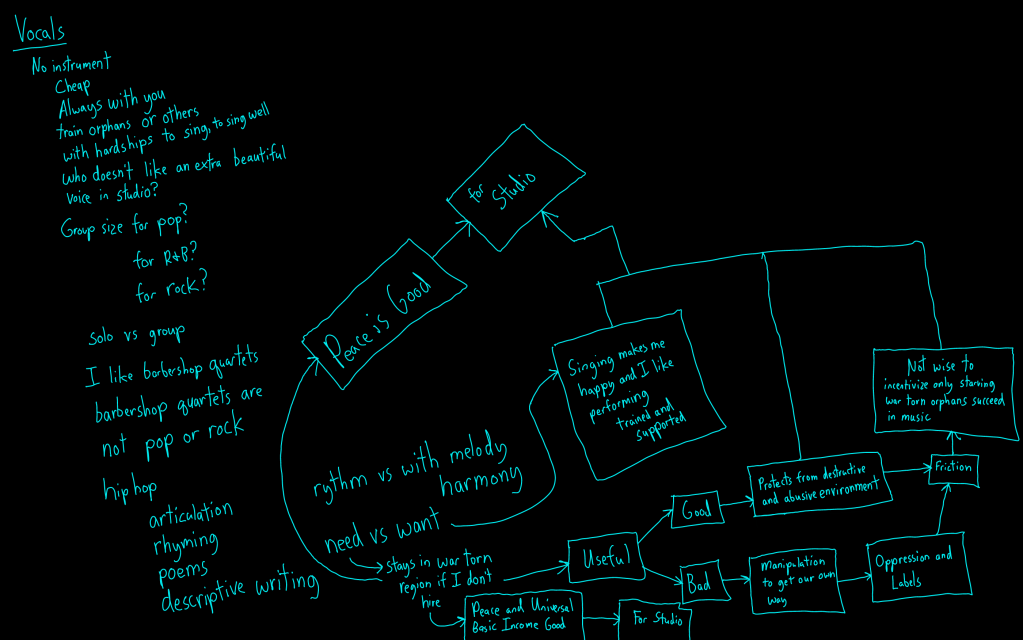 Vocals
No instrument
Cheap
Always with you
train orphans or others
with hardships to sing, to sing well
who doesn't like an extra beautiful
voice in studio?
Group size for pop?
for R&B?
for rock?
solo vs group
I like barbershop quartets
barbershop quartets are
not pop or rock
hip hop
articulation
rhyming
poems
descriptive writing
for
Studio
Peace is Good
rythm vs with melody
harmony
need vs want
stays in war torn
region if I don't
hire
Singing makes me
happy and I like
performing
trained and
supported
Useful
Good
Bad
Peace and Universal
Basic Income Good
For Studio
Protects from destructive
and abusive environment
manipulation
to get our own
way
Oppression and
Labels
Friction
Not wise to
incentivize only starving
war torn orphans succeed
in music